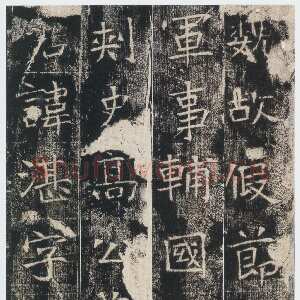 魏故假節
軍事輔國
刺史高公
君諱湛字